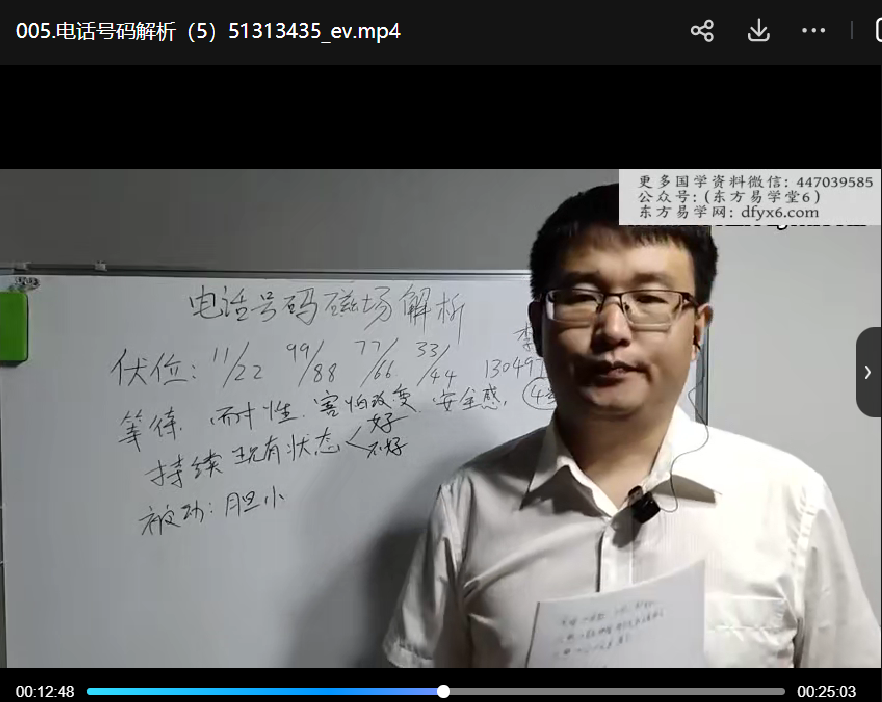 005.电话号码解析（5）51313435_ev.mp4
更多国学资料微信：447039585
公众号：(东方易学堂6)
东方易学网：dfyx6.com
电话号码磁场解析
李
伏位：11/22 99/88 77/66 33/44 13049
等待.耐性.害怕改变 安全感.
持续现有状态 好 不好
被动：胆小
00:12:48
00:25:03